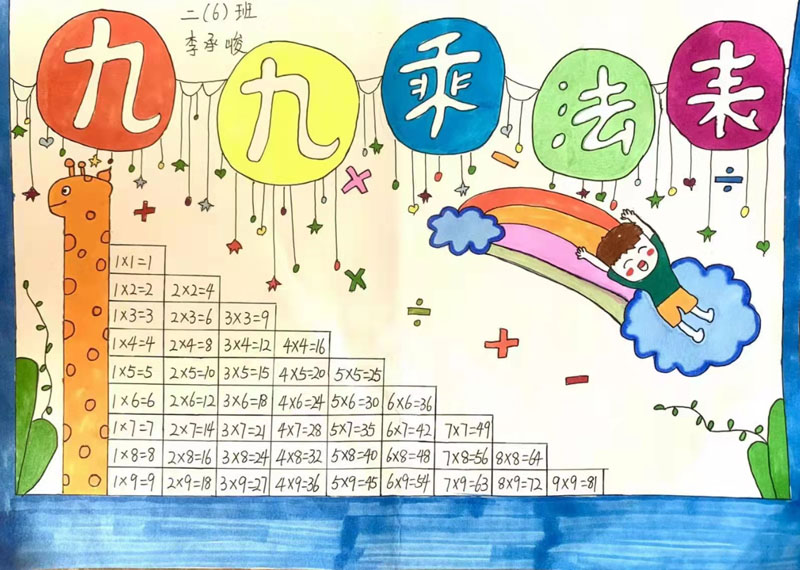 二(6)班
李承峻
九九乘法表
1×1=1
1×2=2 2×2=4
1×3=3 2×3=6 3×3=9
1×4=4 2×4=8 3×4=12 4×4=16
1×5=5 2×5=10 3×5=15 4×5=20 5×5=25
1×6=6 2×6=12 3×6=18 4×6=24 5×6=30 6×6=36
1×7=7 2×7=14 3×7=21 4×7=28 5×7=35 6×7=42 7×7=49
1×8=8 2×8=16 3×8=24 4×8=32 5×8=40 6×8=48 7×8=56 8×8=64
1×9=9 2×9=18 3×9=27 4×9=36 5×9=45 6×9=54 7×9=63 8×9=72 9×9=81